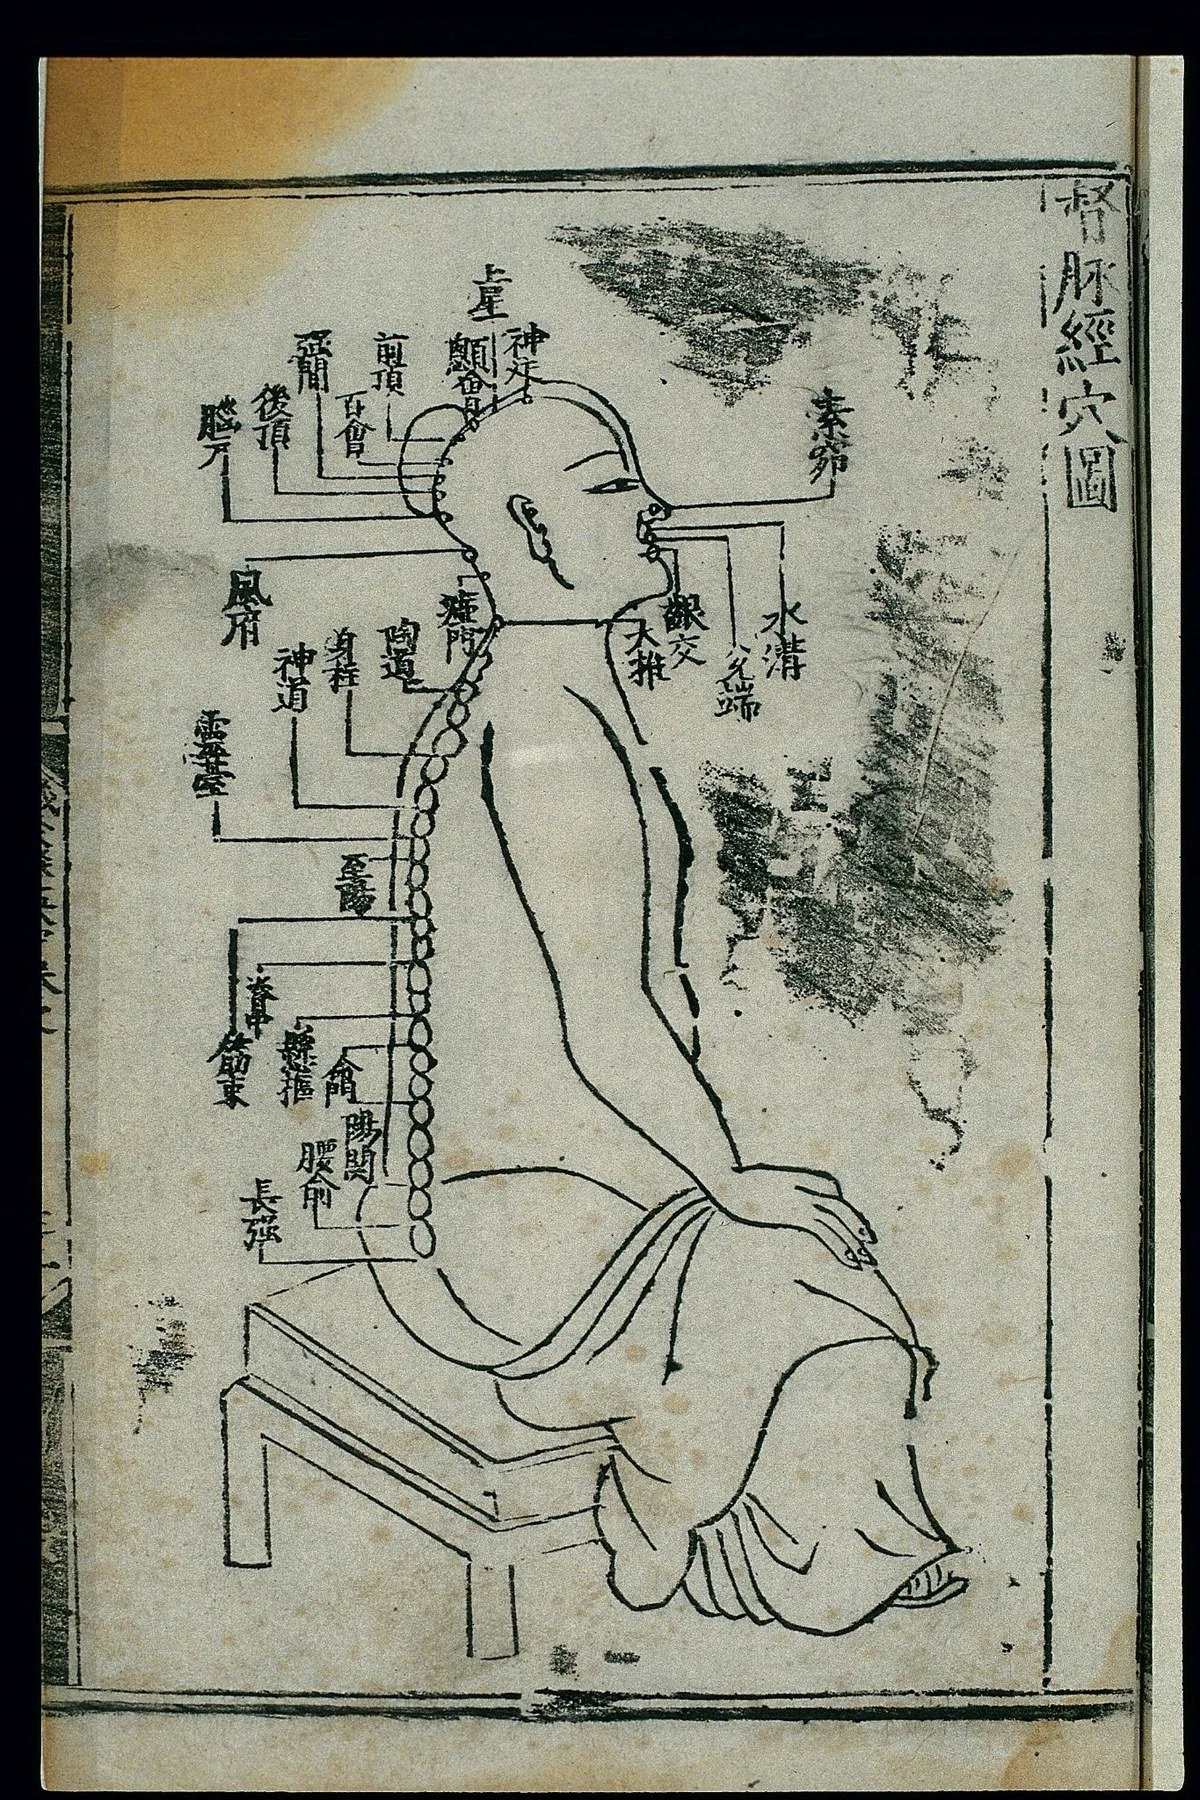 督脉經穴圖
素窌
水溝
兌端
齦交
大推
神廷
上星
顖會
前頂
百會
强間
後頂
腦戶
風府
瘂門
陶道
身柱
神道
靈臺
至陽
筋束
脊中
懸樞
命門
陽関
腰俞
長强